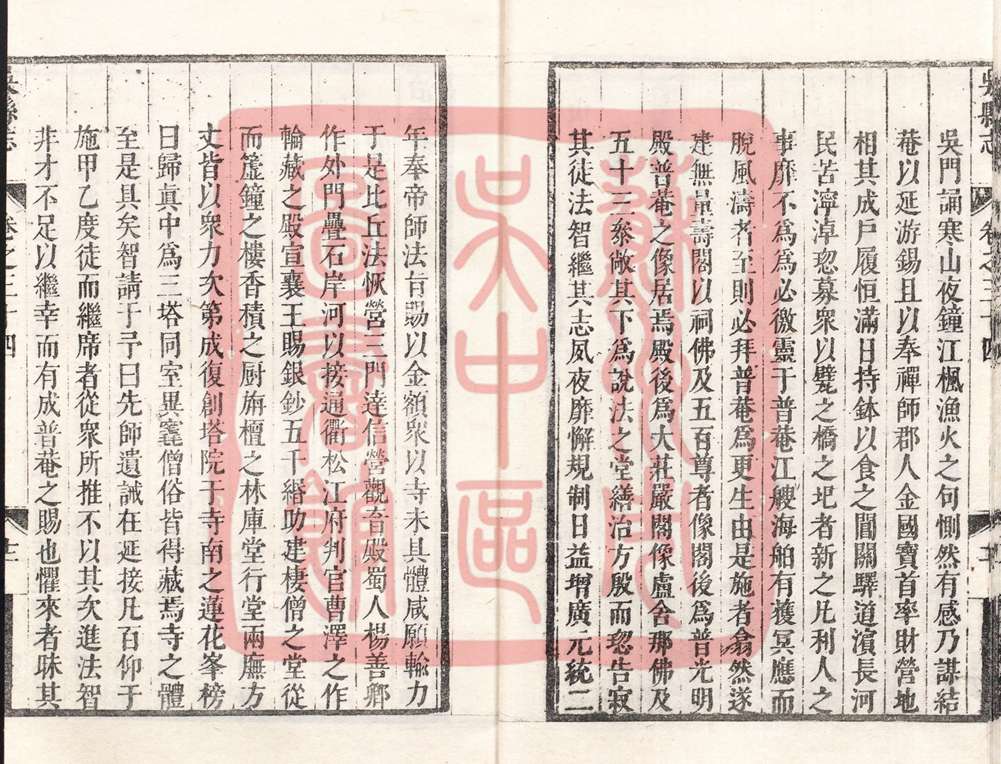 吳縣志
卷之三十四
吳門誦寒山夜鐘江楓漁火之句惻然有感乃謀結
菴以延游錫且以奉禪師郡人金國寶首率財營地
相其成戶履恒滿日持鉢以食之閶關驛道濱長河
民苦濘淖恖募衆以甓之橋之圯者新之凡利人之
事靡不為為必徼靈于普菴江艘海舶有獲冥應而
脫風濤者至則必拜普菴為更生由是施者翕然遂
建無量壽閣以祠佛及五百尊者像閣後為普光明
殿普菴之像居焉殿後爲大莊嚴閣像盧舍那佛及
五十三叅敞其下爲說法之堂繕治方殷而恖告寂
其徒法智繼其志夙夜靡懈規制日益增廣元統二
年奉帝師法旨賜以金額衆以寺未具體咸願輸力
于是比丘法恢營三門達信營觀音殿蜀人楊善卿
作外門疊石岸河以接通衢松江府判官曹澤之作
輪藏之殿宣襄王賜銀鈔五千緡助建棲僧之堂從
而簴鐘之樓香積之厨旃檀之林庫堂行堂兩廡方
丈皆以衆力次第成復創塔院于寺南之蓮花峯榜
曰歸眞中爲三塔同室異窆僧俗皆得藏焉寺之體
至是具矣智請于予曰先師遺誡在延接凡百仰于
施甲乙度徒而繼席者從衆所推不以其次進法智
非才不足以繼幸而有成普菴之賜也懼來者昧其
吳縣志
卷之三十四
蘇州市
吳中區
圖書館